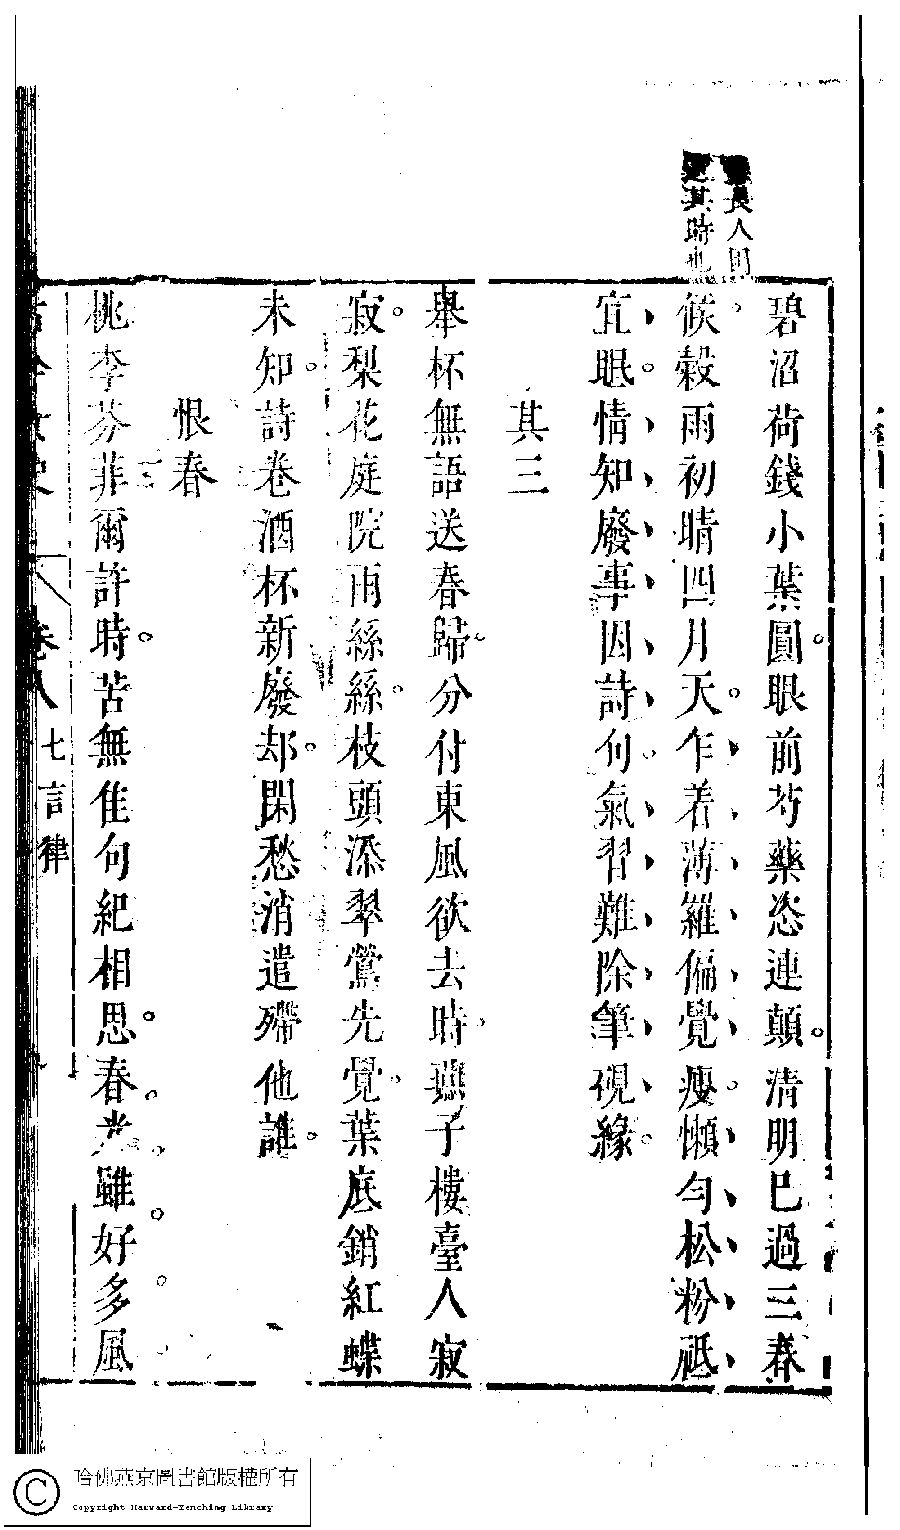 長人間
其時也
碧沼荷錢小葉圓眼前芍藥恣連顛清明巳過三春
候穀雨初晴四月天乍着薄羅偏覺瘦懶勻松粉祗
宜眠情知廢事因詩句氣習難除筆硯緣
其三
舉杯無語送春歸分付東風欲去時燕子樓臺人寂
寂梨花庭院雨絲絲枝頭添翠鶯先覺葉底銷紅蝶
未知詩卷酒杯新廢却閑愁消遣殢他誰
恨春
桃李芬菲爾許時苦無佳句紀相思春光雖好多風
卷八 七言律
哈佛燕京圖書館版權所有
Copyright Harvard-Yenching Library